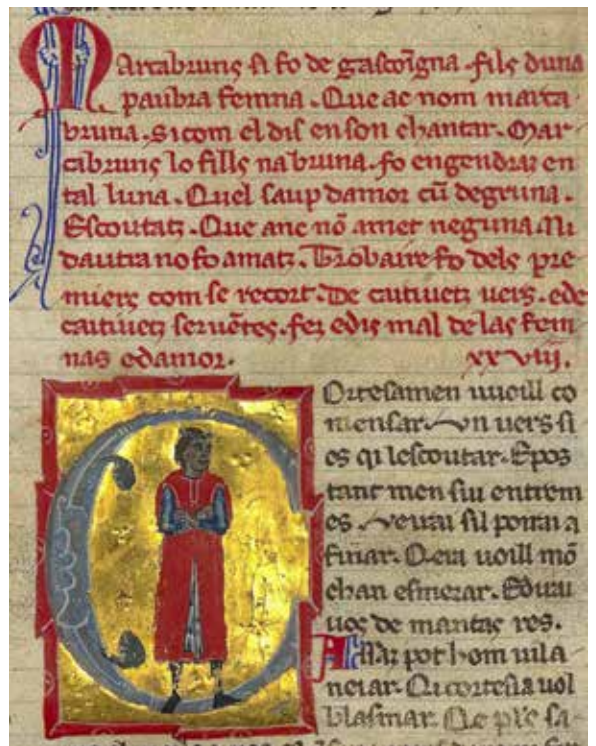 Marcabruns si fo de gascoigna fils duna
paubra femna. Que ac nom marca
bruna. si com el dis en son chantar. Mar
cabruns lo fills na bruna. fo engendraz en
tal luna. Quel saup damor cū degruna.
Escoutatz. Que anc nō amet neguna. Ni
dautra no fo amatz. Trobaire fo dels pre
miers com se recort. De caitiuetz uers. e de
caitiuetz seruētes. fez e dis mal de las fem
nas e damor. xxviii.
Cortesamen uuoill co
mensar. un uers si
es qi lescoutar. E pos
tant men sui entrem
es. veirai sil poirai a
finar. Qera uoill mō
chan esmerar. E dirai
uos de mantas res.
Assaz pot hom uila
neiar. Qi cortesia uol
blasmar.